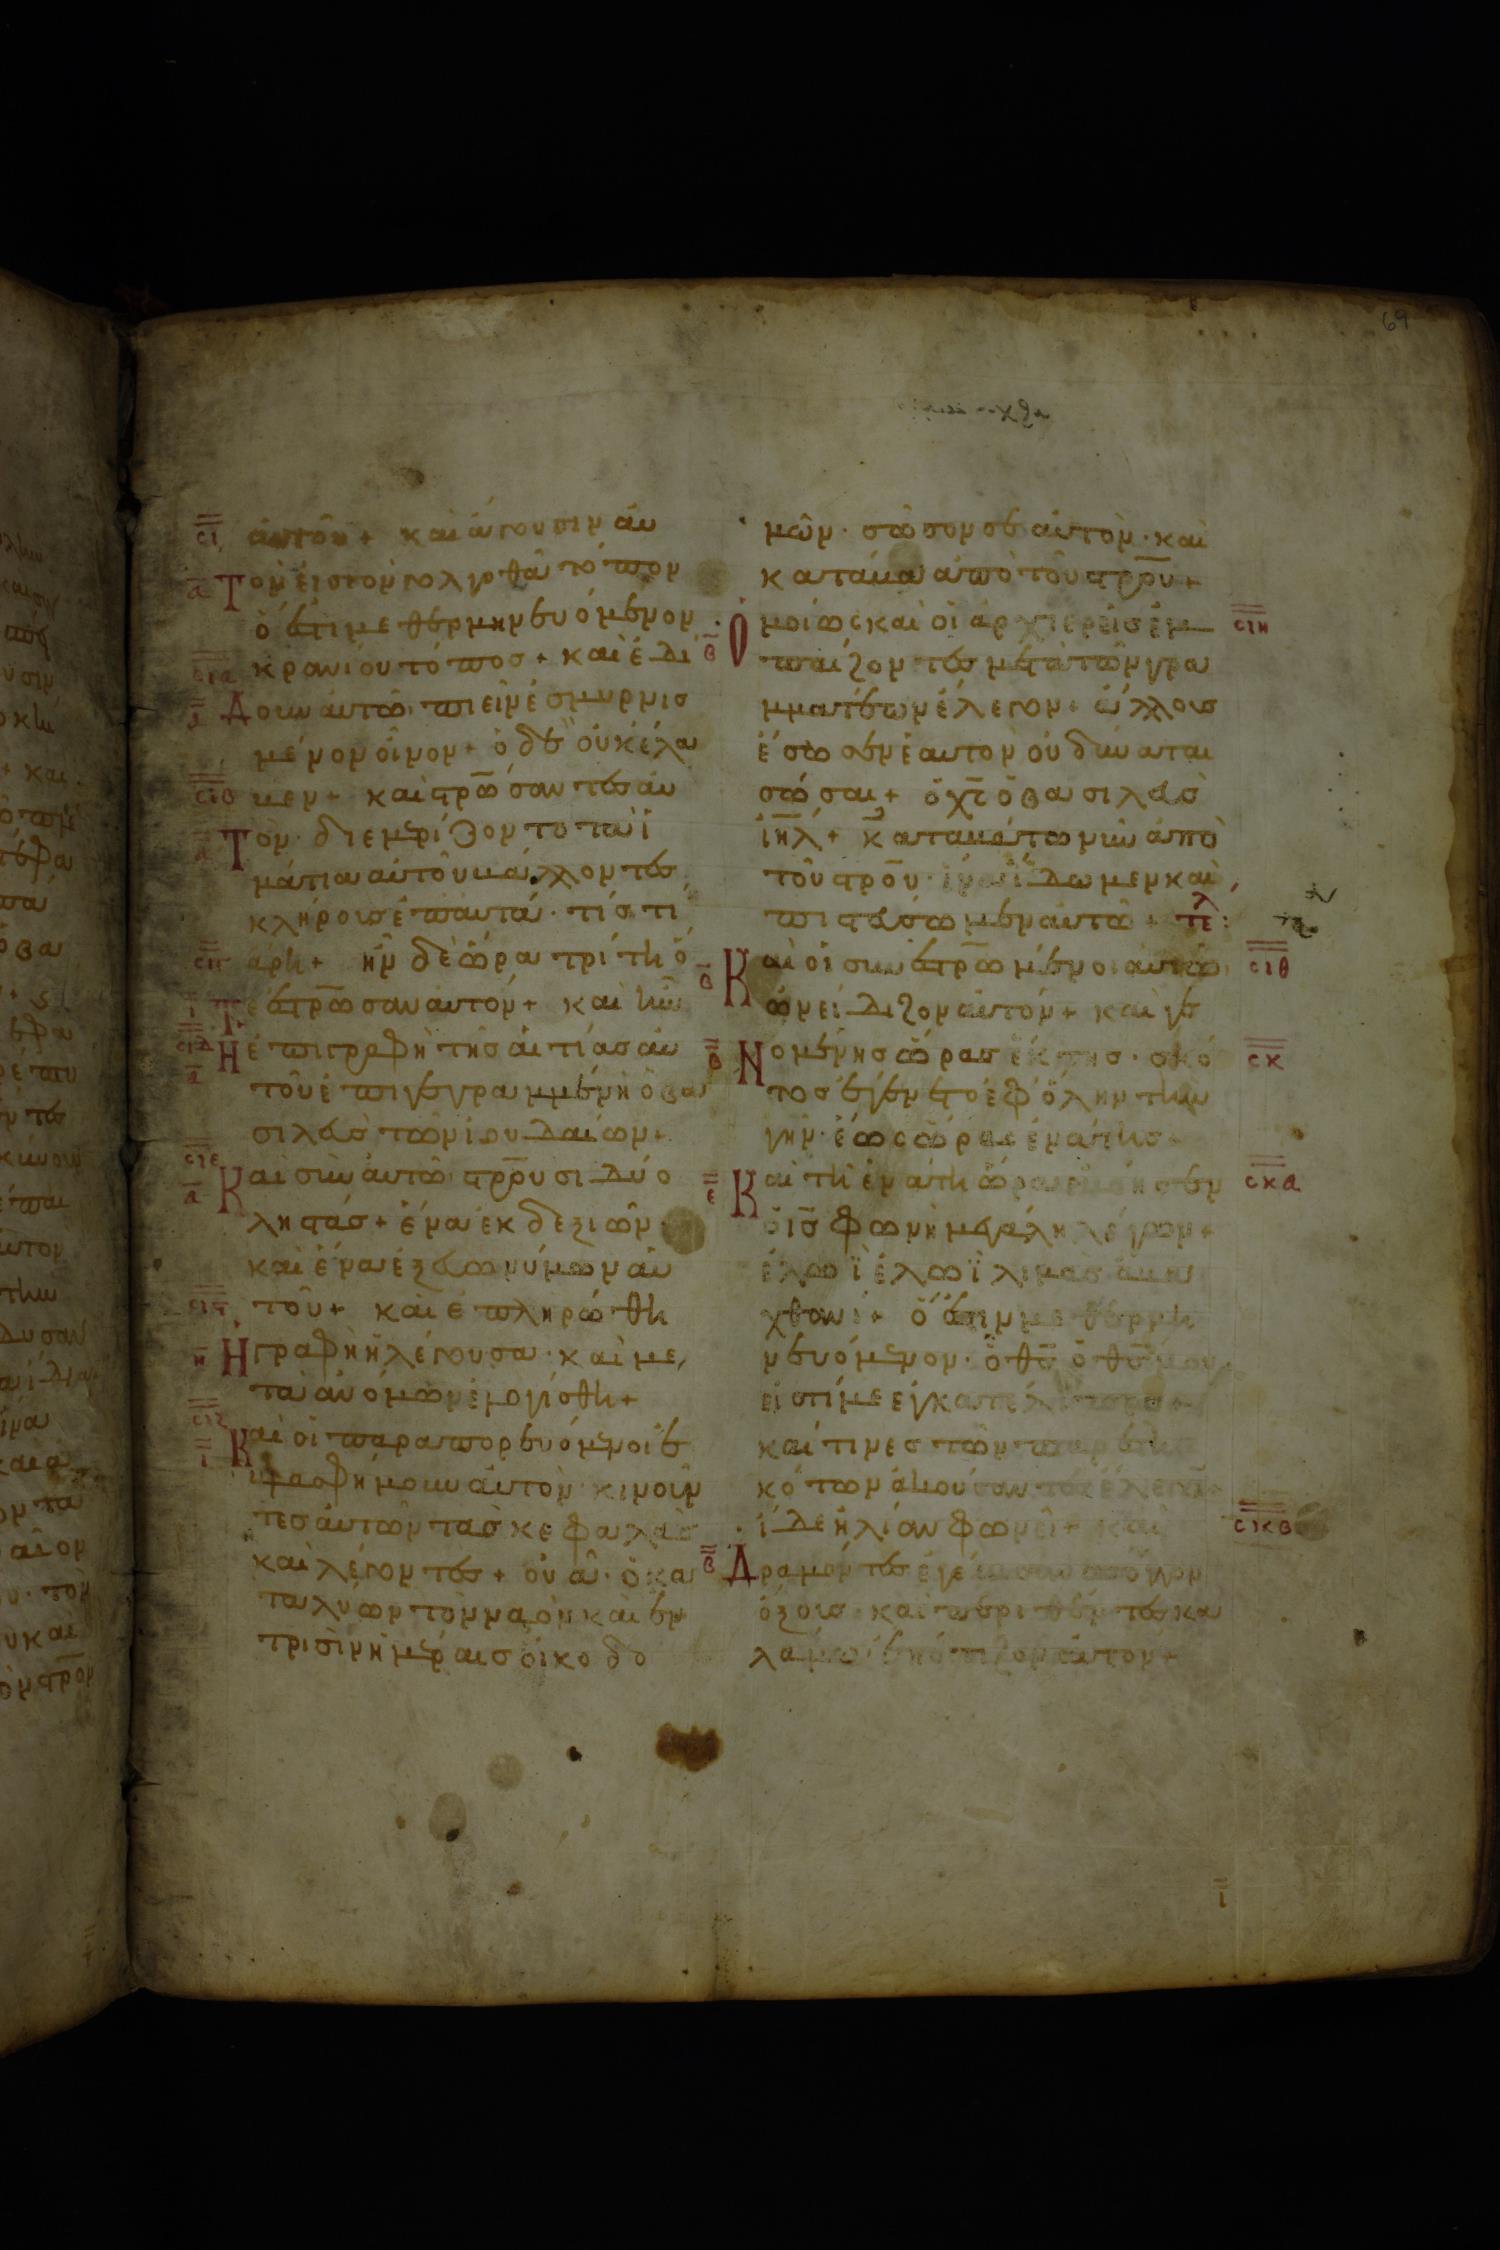 69
αὐτὸν + καὶ ἄγουσιν αὐ
Τὸν εἰς τὸν γολγοθᾶ τόπον
ὅ ἐστι μεθερμηνευόμενον
κρανίου τόπος + καὶ ἐδί
Δουν αὐτῶ πιεῖν ἐσμυρνισ
μένον οἶνον + ὁ δὲ οὐκ ἔλα
βεν + καὶ σταυρώσαντες αὐ
Τὸν. διεμερίζοντο τὰ ἱ
μάτια αὐτοῦ βάλλοντες
κλήρους ἐπ' αὐτά. τίς τί
ἄρη + ἦν δὲ ὥρα τρίτη ὅ
Τε ἐσταύρωσαν αὐτόν + καὶ ἦν
Ἡ ἐπιγραφὴ τῆς αἰτίας αὐ
τοῦ ἐπιγεγραμμένη ὁ βα
σιλεὺς τῶν ἰουδαίων +
Καὶ σὺν αὐτῶ στρουσι δύο
ληστάς + ἕνα ἐκ δεξιῶν
καὶ ἕνα ἐξ εὐωνύμων αὐ
τοῦ + καὶ ἐπληρώθη
Ἡ γραφὴ ἡ λέγουσα. καὶ με
τὰ ἀνόμων ἐλογίσθη +
Καὶ οἱ παραπορευόμενοι ἐ
βλασφήμουν αὐτὸν κινοῦν
τες αὐτῶν τὰς κεφαλὰς
καὶ λέγοντες + οὐά. ὁ κα
ταλύων τὸν ναὸν καὶ ἐν
τρισὶν ἡμέραις οἰκοδο
μῶν. σῶσον σεαυτὸν. καὶ
κατάβα ἀπὸ τοῦ στρου +
Ὁμοίως καὶ οἱ ἀρχιερεῖς ἐμ
παίζοντες μετὰ τῶν γρα
μματέων ἔλεγον. ἄλλους
ἔσωσεν ἑαυτὸν οὐ δύναται
σῶσαι + ὁ χς ὁ βασιλεὺς
ἰηλ + καταβάτω νῦν ἀπὸ
τοῦ στρου. ἵνα ἴδωμεν καὶ
πιστεύσωμεν αὐτῶ + τελ:
Καὶ οἱ συνεσταυρωμένοι αὐτῶ
ὠνείδιζον αὐτόν + καὶ γε
Νομένης ὥρας ἕκτης. σκό
τος ἐγένετο ἐφ' ὅλην τὴν
γῆν. ἕως ὥρας ἐνάτης
Καὶ τῆ ἐνάτη ὥρα ἐβόησεν
ὁ ις φωνῆ μεγάλη λέγων +
ἐλωῒ ἐλωῒ λιμὰς
χθανί + ὅ ἐστιν μεθερμη
νευόμενον. ὁ θς ὁ θς μου
εἰς τί με ἐγκατέλιπες +
καί τινες τῶν παρεστη
κότων ἀκούσαντες ἔλεγον
ἴδε ἠλίαν φωνεῖ + καὶ
Δραμόντες ἐγέμισαν σπόγγον
ὄξους καὶ περιθέντες κα
λάμω ἐπότιζον αὐτόν +